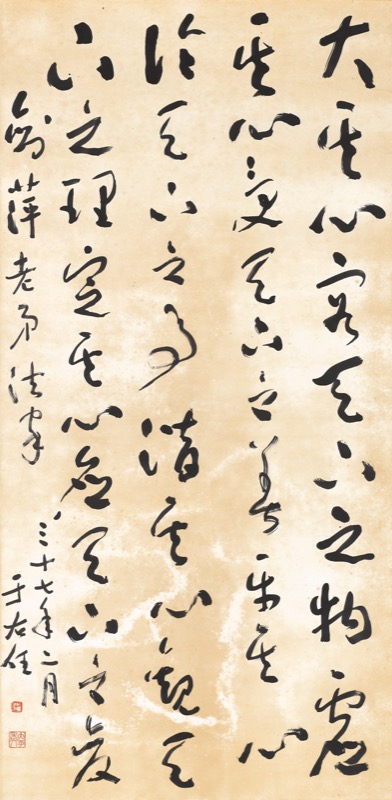 大其心容天下之物虛
其心受天下之善平其心
論天下之事潛其心觀天
下之理定其心應天下之變
劍萍老弟法家
三十七年二月
于右任